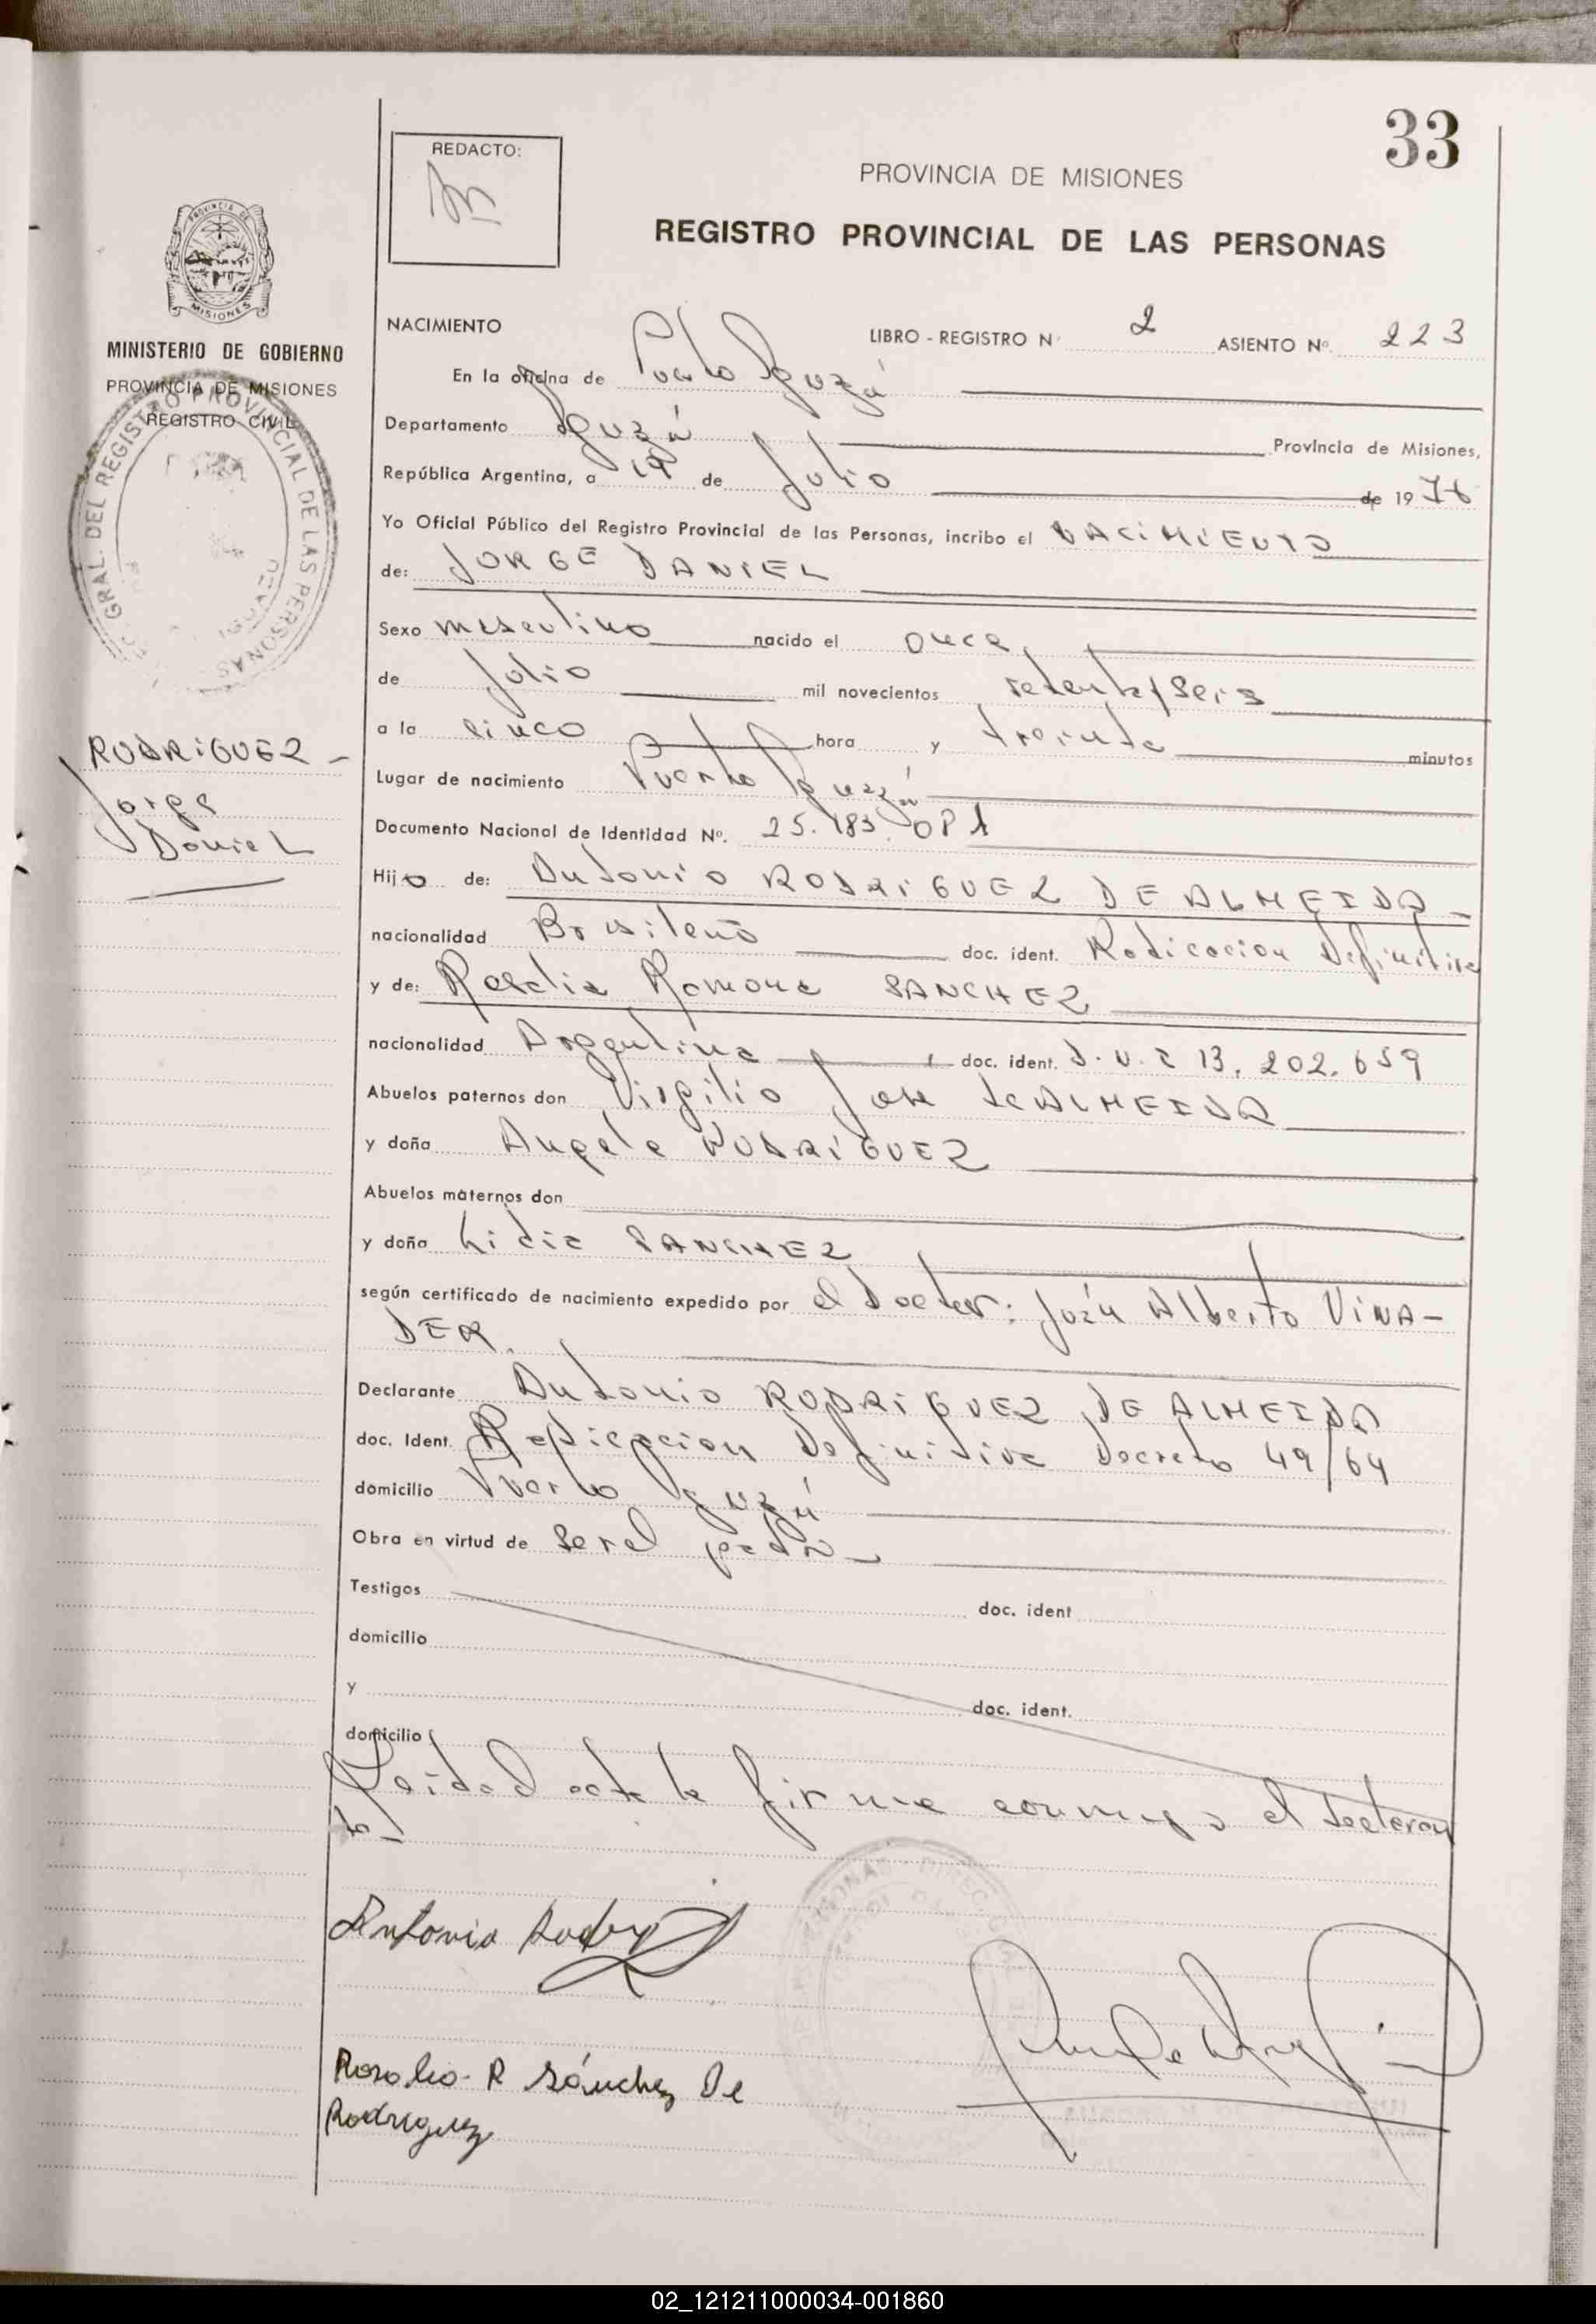 33
REDACTO:
PROVINCIA DE MISIONES
REGISTRO PROVINCIAL DE LAS PERSONAS
PROVINCIA DE
MISIONES
MINISTERIO DE GOBIERNO
PROVINCIA DE MISIONES
REGISTRO CIVIL
GRAL. DEL REGISTRO PROVINCIAL DE LAS PERSONAS
RODRIGUEZ -
Jorge
Daniel
NACIMIENTO LIBRO - REGISTRO N° 2 ASIENTO Nº. 223
En la oficina de Puerto Iguazú
Departamento Iguazú Provincia de Misiones,
República Argentina, a 19 de Julio de 1976
Yo Oficial Público del Registro Provincial de las Personas, incribo el NACIMIENTO
de: JORGE DANIEL
Sexo masculino nacido el once
de Julio mil novecientos setenta y seis
a la cinco hora y treinta minutos
Lugar de nacimiento Puerto Iguazú
Documento Nacional de Identidad Nº. 25.183.081
Hijo de: Antonio RODRIGUEZ DE ALMEIDA -
nacionalidad Brasileño doc. ident. Radicacion Definitiva
y de: Rosalia Ramona SANCHEZ
nacionalidad Argentina doc. ident. D.N.I 13.202.659
Abuelos paternos don Virgilio José de ALMEIDA
y doña Angela RODRÍGUEZ
Abuelos maternos don
y doña Lidia SANCHEZ
según certificado de nacimiento expedido por el Doctor: Juán Alberto VINA-
DER.
Declarante Antonio RODRIGUEZ DE ALMEIDA
doc. Ident. Radicacion Definitiva Decreto 49/64
domicilio Puerto Iguazú
Obra en virtud de ser el padre
Testigos doc. ident
domicilio
y doc. ident.
domicilio
Leida el acta la firma conmigo el declaran
te_
Antonio Rodrig
Rosalia R Sánchez De
Rodriguez
02_121211000034-001860